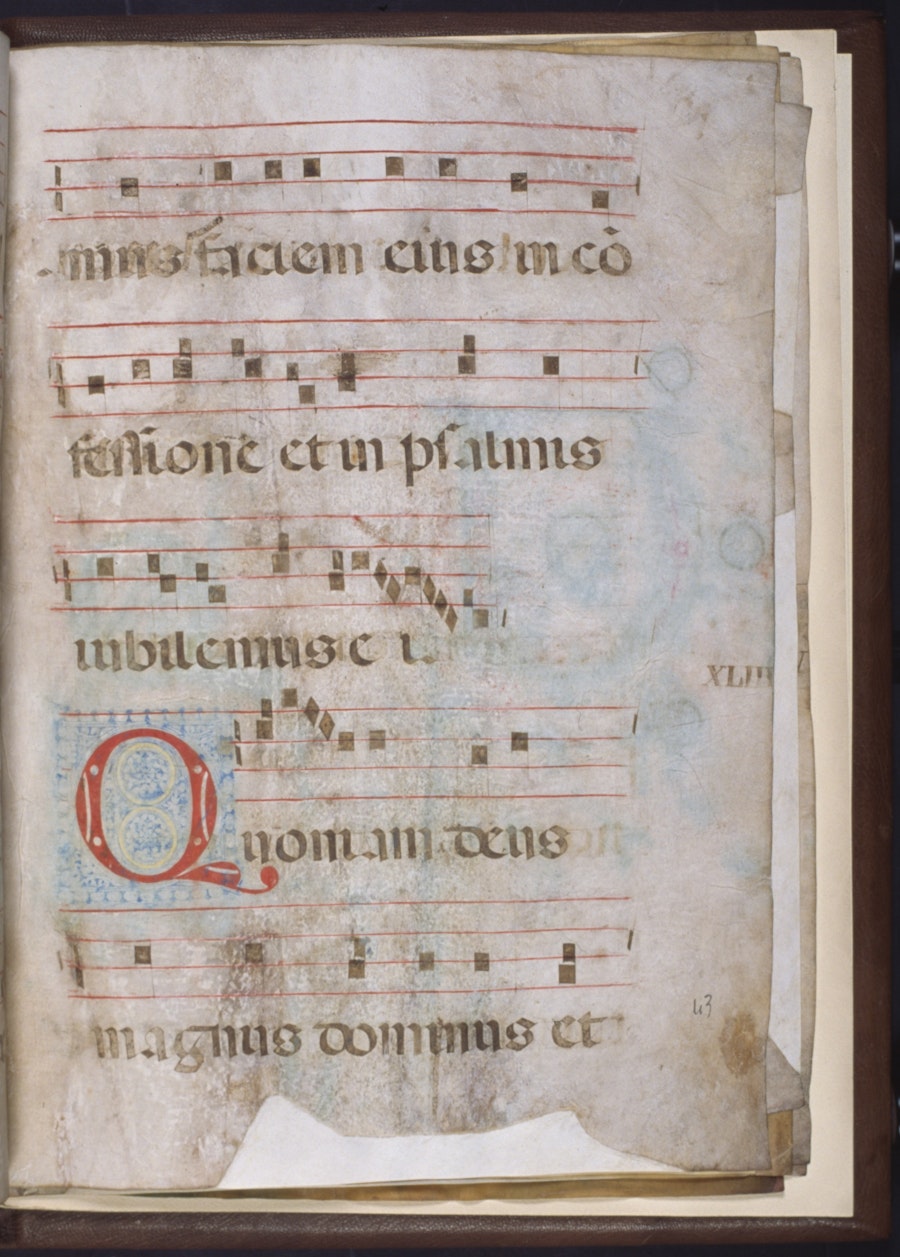 mus faciem eius in cō
fessione et in psalmis
iubilemus e i
XLIII
Quoniam deus
magnus dominus et
43